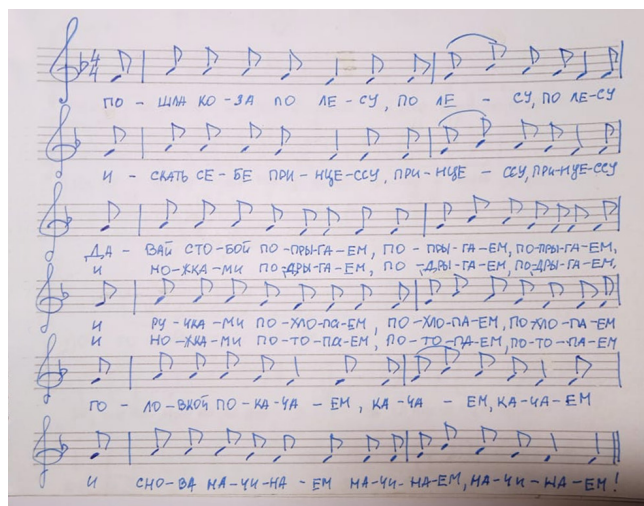 ПО - ШЛА КО-ЗА ПО ЛЕ-СУ, ПО ЛЕ - СУ, ПО ЛЕ-СУ
И - СКАТЬ СЕ-БЕ ПРИ-НЦЕ-ССУ, ПРИ-НЦЕ - ССУ, ПРИ-НЦЕ-ССУ
ДА - ВАЙ СТО-БОЙ ПО-ПРЫ-ГА-ЕМ, ПО - ПРЫ-ГА-ЕМ, ПО-ПРЫ-ГА-ЕМ,
И НО-ЖКА-МИ ПО-ДРЫ-ГА-ЕМ, ПО-ДРЫ-ГА-ЕМ, ПО-ДРЫ-ГА-ЕМ,
И РУ-ЧКА-МИ ПО-ХЛО-ПА-ЕМ, ПО-ХЛО-ПА-ЕМ, ПО-ХЛО-ПА-ЕМ
И НО-ЖКА-МИ ПО-ТО-ПА-ЕМ, ПО-ТО-ПА-ЕМ, ПО-ТО-ПА-ЕМ
ГО - ЛО-ВКОЙ ПО-КА-ЧА - ЕМ, КА-ЧА - ЕМ, КА-ЧА-ЕМ
И СНО-ВА НА-ЧИ-НА - ЕМ НА-ЧИ-НА-ЕМ, НА-ЧИ-НА-ЕМ!